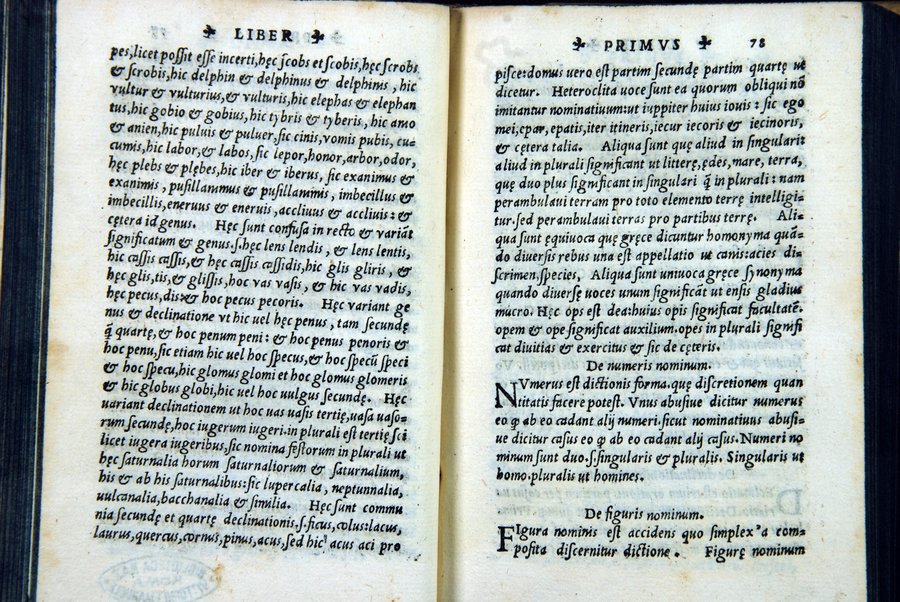 LIBER
pes, licet possit esse incerti, hęc scobs et scobis, hęc scrobs
& scrobis, hic delphin & delphinus & delphinis, hic
vultur & vulturius, & vulturis, hic elephas & elephan
tus, hic gobio & gobius, hic tybris & tyberis, hic amo
& anien, hic puluis & puluer, sic cinis, vomis pubis, cu-
cumis, hic labor, & labos, sic lepor, honor, arbor, odor,
hęc plebs & plębes, hic iber & iberus, sic exanimus &
exanimis, pusillanimus & pusillanimis, imbecillus &
imbecillis, eneruus & eneruis, accliuus & accliuis: &
cętera id genus. Hęc sunt confusa in recto & variāt
significatum & genus. s. hęc lens lendis, & lens lentis,
hic cassis cassis, & hęc cassis cassidis, hic glis gliris, &
hęc glis, tis, & glissis, hoc vas vasis, & hic vas vadis,
hęc pecus, dis: & hoc pecus pecoris. Hęc variant ge
nus & declinatione vt hic uel hęc penus, tam secundę
q̄ quartę, & hoc penum peni: & hoc penus penoris &
hoc penu, sic etiam hic uel hoc specus, & hoc specū speci
& hoc specu, hic glomus glomi et hoc glomus glomeris
& hic globus globi, hic uel hoc uulgus secundę. Hęc
uariant declinationem ut hoc uas uasis tertię, uasa uaso-
rum secundę, hoc iugerum iugeri. in plurali est tertię sci
licet iugera iugeribus, sic nomina festorum in plurali ut
hęc saturnalia horum saturnaliorum & saturnalium,
his & ab his saturnalibus: sic lupercalia, neptunnalia,
uulcanalia, bacchanalia & similia. Hęc sunt commu
nia secundę et quartę declinationis. s. ficus, colus: lacus,
laurus, quercus, cornus, pinus, acus, sed hic acus aci pro
PRIMVS 78
pisce: domus uero est partim secundę partim quartę ut
dicetur. Heteroclita uoce sunt ea quorum obliqui nō
imitantur nominatiuum: ut iuppiter huius iouis: sic ego
mei, epar, epatis, iter itineris, iecur iecoris & iecinoris,
& cętera talia. Aliqua sunt quę aliud in singulari:
aliud in plurali significant ut litterę, ędes, mare, terra,
quę duo plus significant in singulari q̄ in plurali: nam
perambulaui terram pro toto elemento terrę intelligi-
tur. sed perambulaui terras pro partibus terrę. Ali-
qua sunt ęquiuoca quę gręce dicuntur homonyma quā-
do diuersis rebus una est appellatio ut canis: acies di-
scrimen, species. Aliqua sunt uniuoca gręce synonyma
quando diuersę uoces unum significāt ut ensis gladius
macro. Hęc ops est dea: huius opis significat facultatē.
opem & ope significat auxilium. opes in plurali signifi
cat diuitias & exercitus & sic de cęteris.
De numeris nominum.
NVmerus est dictionis forma. quę discretionem quan
titatis facere potest. Vnus abusiue dicitur numerus
eo ꝙ ab eo cadant alij numeri. sicut nominatiuus abusi-
ue dicitur casus eo ꝙ ab eo cadant alij casus. Numeri no
minum sunt duo. s. singularis & pluralis. Singularis ut
homo. pluralis ut homines.
De figuris nominum.
FIgura nominis est accidens quo simplex a com-
posita discernitur dictione. Figurę nominum